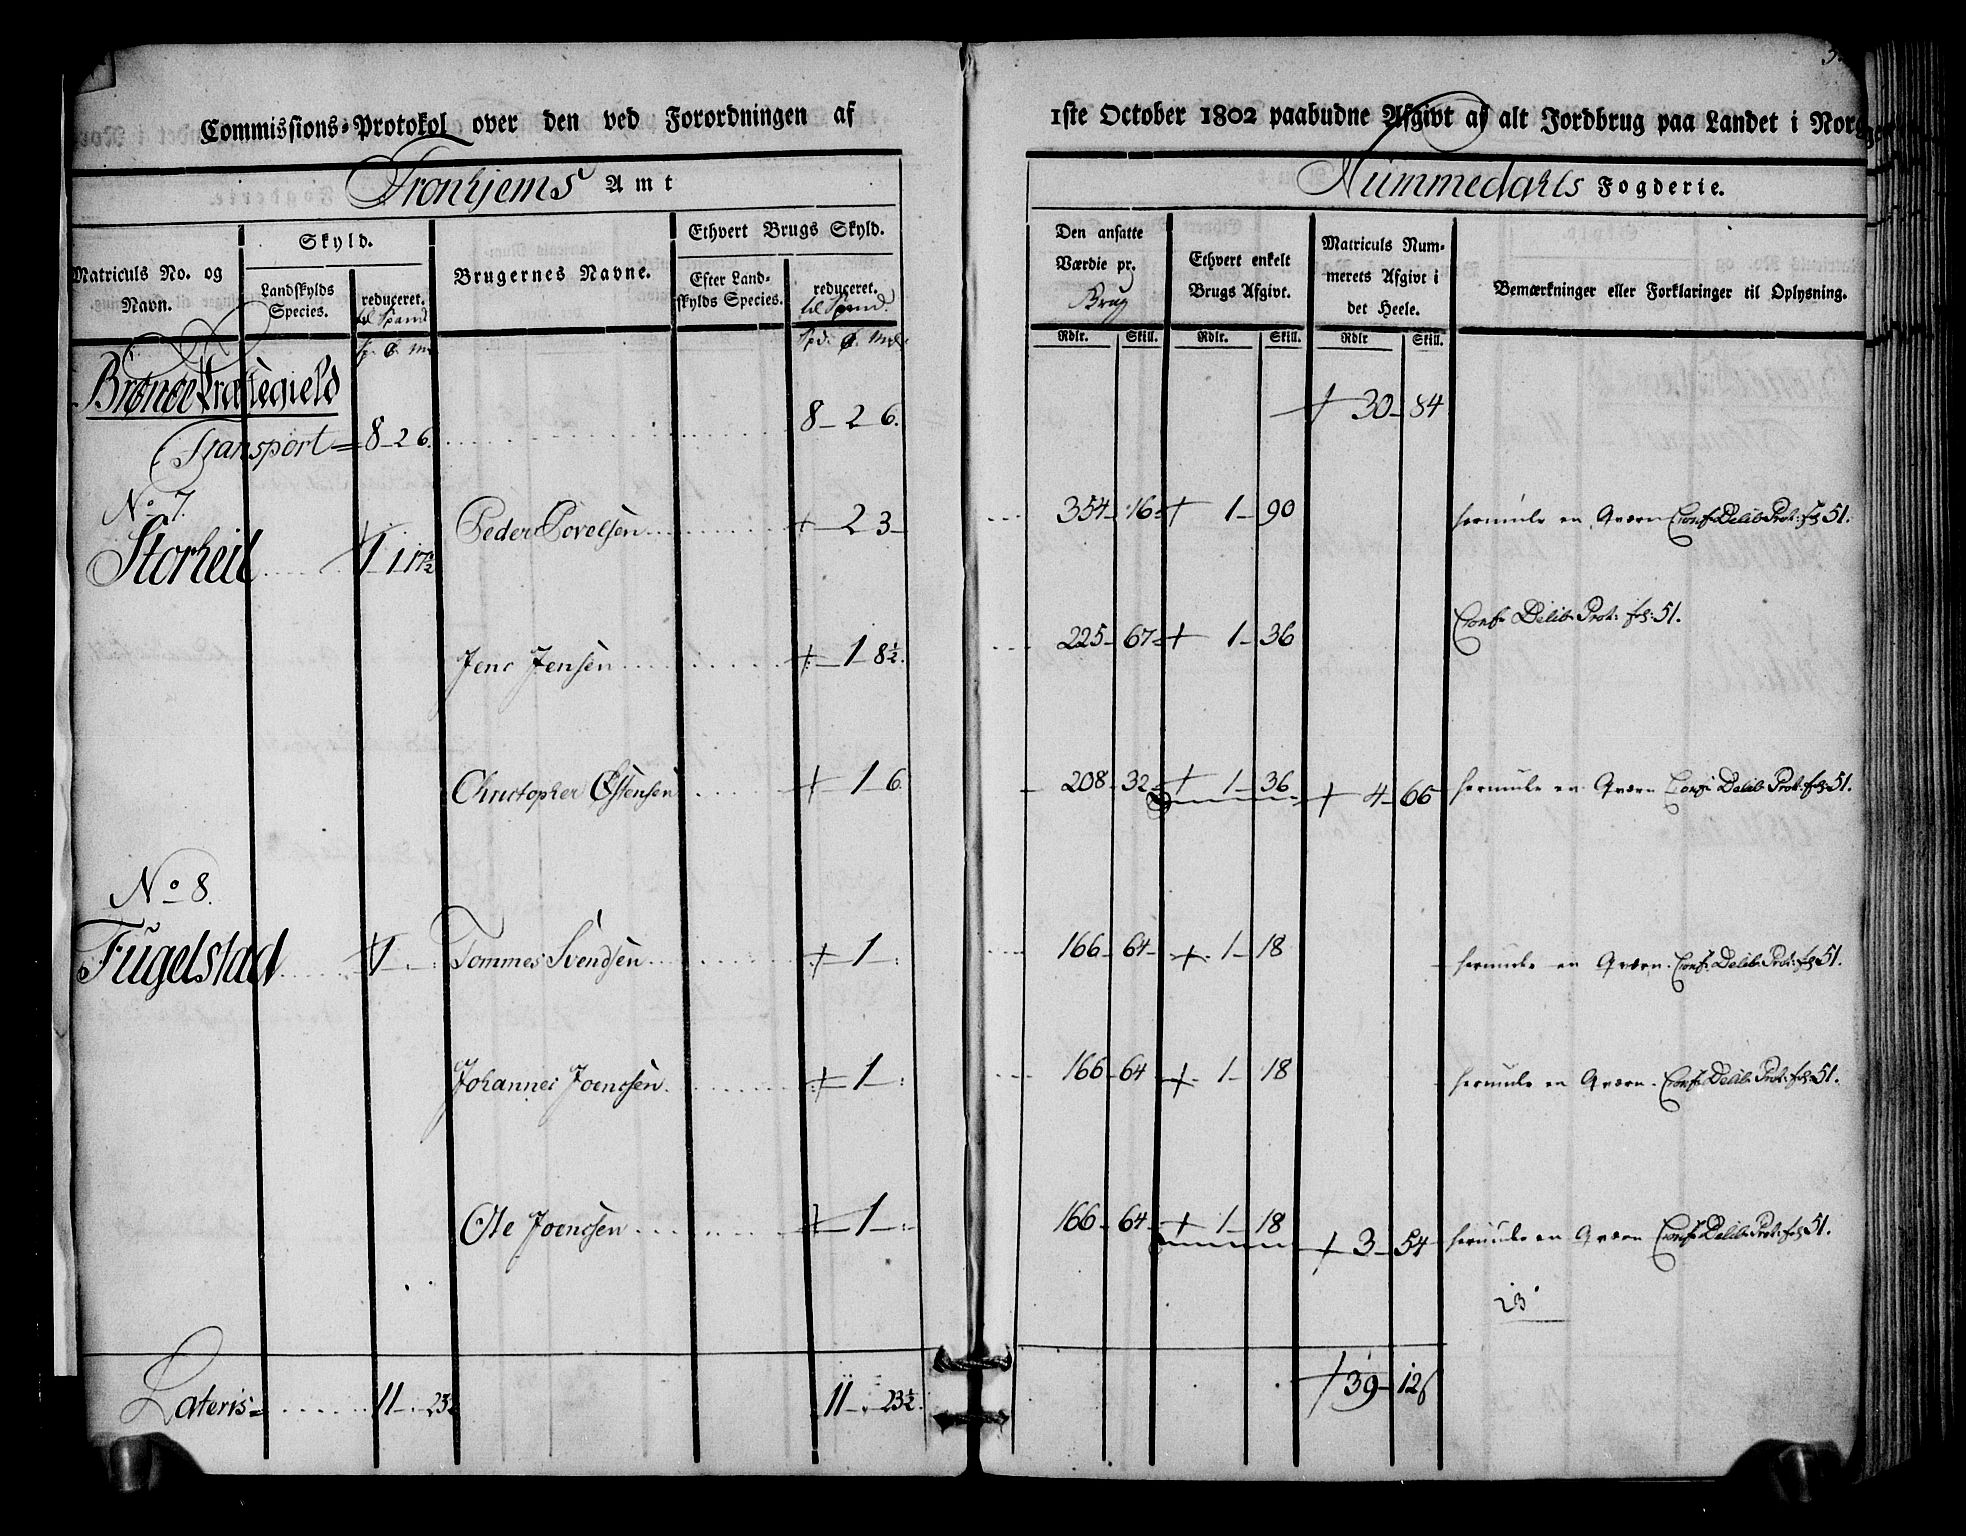 Commissions-Protokol over den ved Forordningen af 1ste October 1802 paabudne Afgivt af alt Jordbrug paa Landet i Norge
Tronhjems Amt
Nummedahls Fogderie.
Matriculs No. og Navn.
Skyld.
Landskylds Species.
reduceret. til Spand
Sp. Ø. Mk
Brugernes Navne.
Ethvert Brugs Skyld.
Efter Landskylds Species.
reduceret. til Spand.
Spd. Ø. Mk.
Den ansatte Værdie pr. Brug
Rdlr. Skill.
Ethvert enkelt Brugs Afgivt.
Rdlr. Skill.
Matriculs Nummerets Afgivt i det Heele.
Rdlr Skill.
Bemærkninger eller Forklaringer til Oplysning.
Brønøe Præstegield
Transport = 8 - 2 6. 8 - 2 6. + 30 - 84
No 7.
Storheil 1 1 17½ Peder Povelsen + - 2 3 - 354 - 16 + 1 - 90 herunder en Qværn Conf: Delib: Prot: fol: 51.
Jens Jensen + - 1 8½. 225 - 67 + 1 - 36 Conf: Delib: Prot: fol: 51.
Christopher Østensen + - 1 6. 208 - 32 + 1 - 36 + 4 - 66 herunder en Qværn Conf: Delib: Prot: fol: 51.
No 8.
Fugelstad 1 - Tommes Svendsen + - 1 - 166 - 64 - + 1 - 18 herunder en Qværn Conf: Delib: Prot: fol: 51.
Johannes Joensen + - 1 - 166 - 64 + 1 - 18 herunder en Qværn Conf: Delib: Prot: fol: 51.
Ole Joensen + - 1 - 166 - 64 - + 1 - 18 + 3 - 54 herunder en Qværn Conf: Delib: Prot: fol: 51.
Lateris = 11 - 23½ 11 - 23½. + 39 - 12